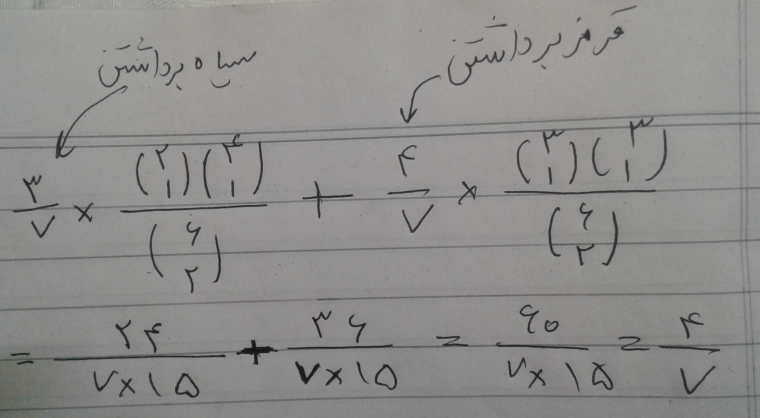 سیاه برداشتن قرمز برداشتن
۳/۷ × (۲ ۱)(۴ ۱)/(۶ ۲) + ۴/۷ × (۳ ۱)(۳ ۱)/(۶ ۲)
= ۲۴/۷×۱۵ + ۳۶/۷×۱۵ = ۶۰/۷×۱۵ = ۴/۷